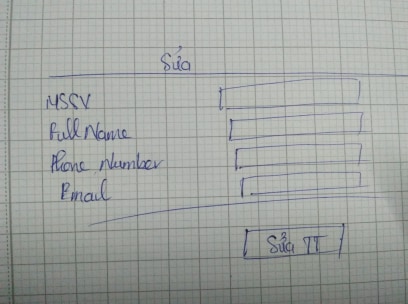 Sửa
MSSV
Full Name
Phone Number
Email
Sửa TT